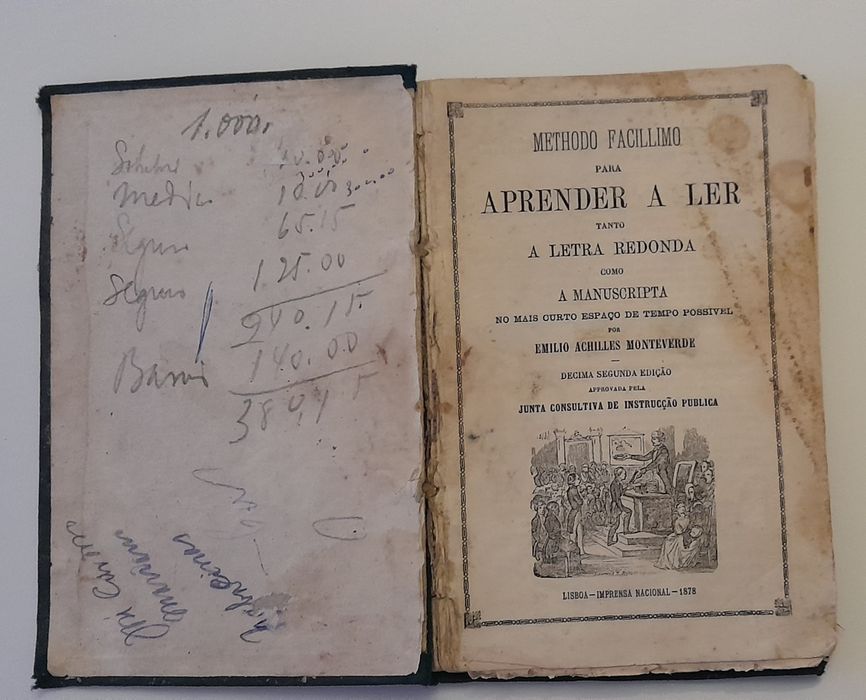 1.000.
Medico
Seguro 65.15
Seguro 125.00
240.15
140.00
METHODO FACILLIMO
PARA
APRENDER A LER
TANTO
A LETRA REDONDA
COMO
A MANUSCRIPTA
NO MAIS CURTO ESPAÇO DE TEMPO POSSIVEL
POR
EMILIO ACHILLES MONTEVERDE
DECIMA SEGUNDA EDIÇÃO
APPROVADA PELA
JUNTA CONSULTIVA DE INSTRUCÇÃO PUBLICA
LISBOA — IMPRENSA NACIONAL — 1878